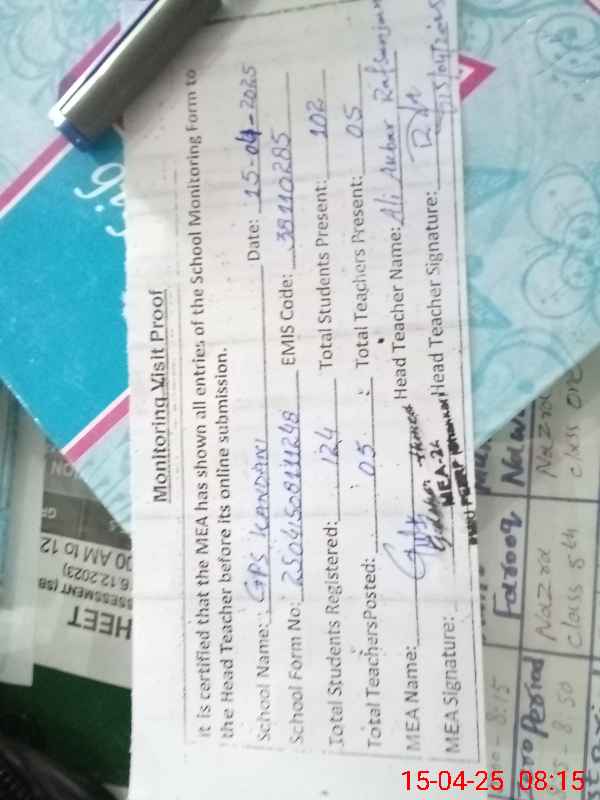 Monitoring Visit Proof
It is certified that the MEA has shown all entries of the School Monitoring Form to
the Head Teacher before its online submission.
School Name: GPS KANDANI Date: 15-04-2025
School Form No: EMIS Code: 38110285
Total Students Registered: 124 Total Students Present: 102
Total TeachersPosted: 05 Total Teachers Present: 05
MEA Name: Head Teacher Name: Ali Akbar
MEA Signature: MEA-26 Head Teacher Signature:
HEET
SSESSMENT (SB
6.12.2023)
00 AM to 12
- 8:15 Farooq
Period Nazra Nazra
- 8:50 class 5th class one
15-04-25 08:15